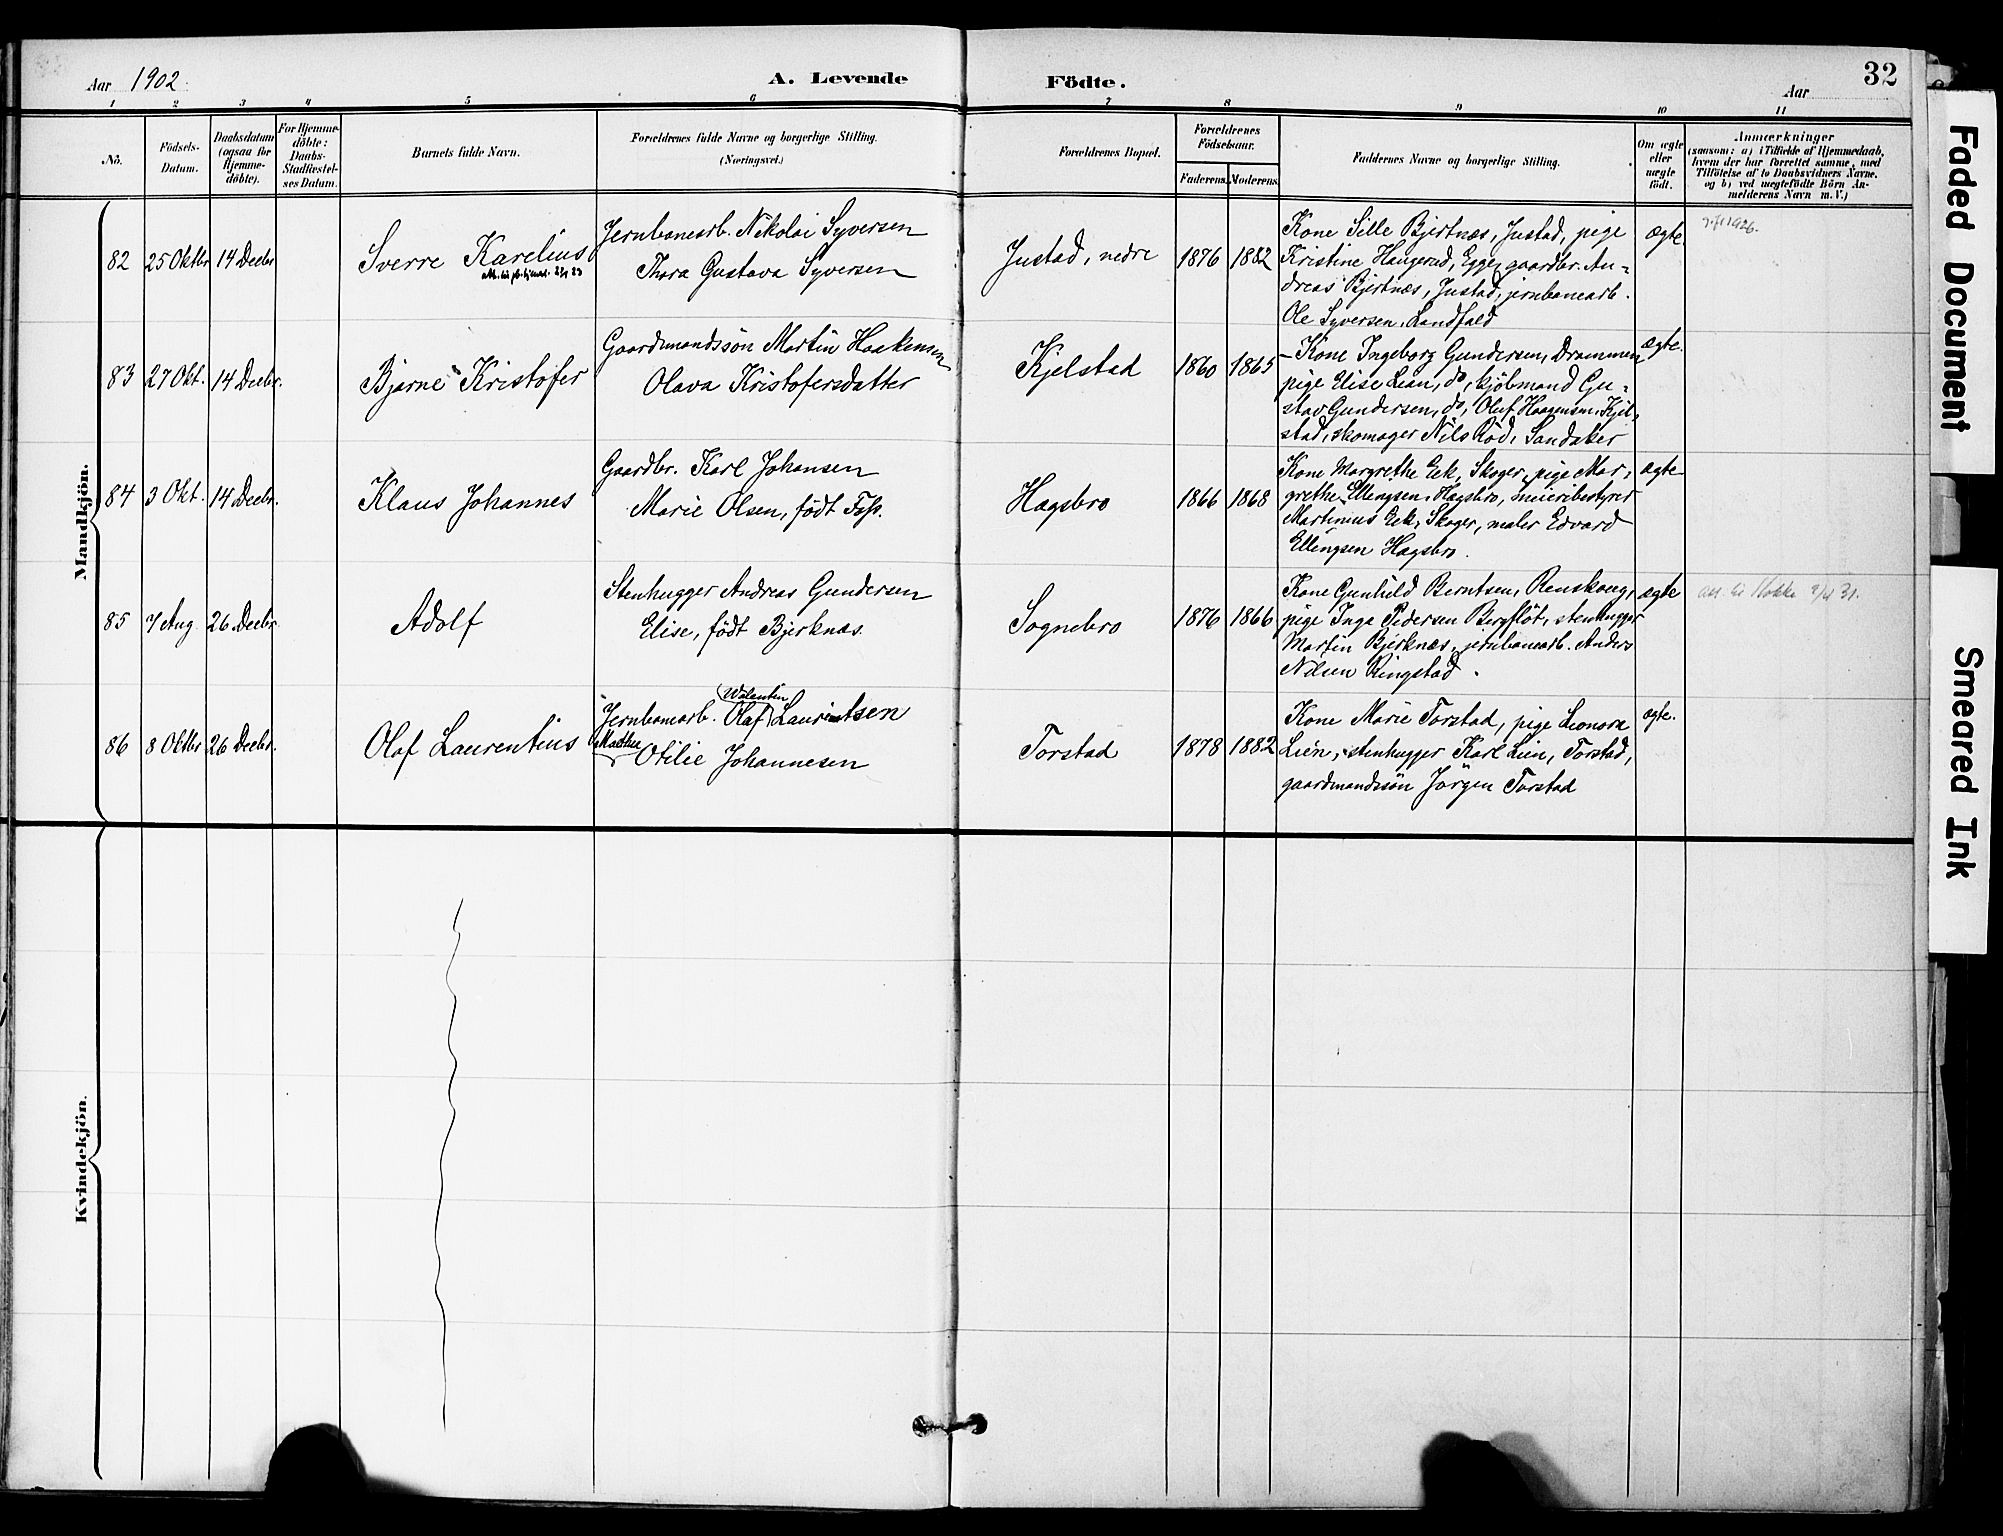 Aar 1902
A. Levende
Födte.
Aar
32
1 2 3 4 5 6 7 8 9 10 11
No.
Födsels-
Datum.
Daabsdatum
(ogsaa for
Hjemme-
döbte).
For Hjemme-
döbte:
Daabs-
Stadfæstel-
ses Datum.
Barnets fulde Navn.
Forældrenes fulde Navne og borgerlige Stilling.
(Næringsvei.)
Forældrenes Bopæl.
Forældrenes
Födselsaar.
Faderens.
Moderens.
Faddernes Navne og borgerlige Stilling.
Om ægte
eller
uægte
födt.
Anmærkninger
(saasom: a) i Tilfælde af Hjemmedaab,
hvem der har forrettet samme, med
Tilföielse af to Daabsvidners Navne.
og b) ved uægtefödte Börn An-
melderens Navn m. V.)
Mandkjön.
82
25 Oktbr
14 Decbr
Sverre Karelius
Jernbanearb. Nikolai Syversen
Thora Gustava Syversen
Justad, nedre
1876
1882
Kone Sille Bjertnæs, Justad, pige
Kristine Haugerud, Egge, gaardbr. An-
dreas Bjertnæs, Justad, jernbanearb.
Ole Syversen, Landfald
ægte.
1926.
83
27 Okt.
14 Decbr.
Bjarne Kristofer
Gaardmandssön Martin Haakensen
Olava Kristofersdatter
Kjelstad
1860
1865
Kone Ingeborg Gundersen, Drammen
pige Elise Lian, do, kjöbmand Gu-
stav Gundersen, do, Oluf Haagensen, Kjel-
stad, skomager Nils Röd, Sandaker
ægte.
84
3 Okt.
14 Decbr.
Klaus Johannes
Gaardbr. Karl Johansen
Marie Olsen, födt Foss.
Hagsbro
1866
1868
Kone Margrethe Eek, Skoger, pige Mar-
grethe Ellengsen, Hagsbro, meieribestyrer
Martinius Eek, Skoger, maler Edvard
Ellengsen Hagsbro.
ægte
85
7 Aug.
26 Decbr
Adolf
Stenhugger Andreas Gundersen
Elise, födt Bjerknæs.
Sognebro
1876
1866
Kone Gunhild Berntsen, Renskoug,
pige Inga Pedersen Bergflöt, stenhugger
Martin Bjerknæs, jernbanearb. Anders
Nilsen Ringstad.
ægte
86
8 Oktbr
26 Decbr.
Olaf Laurentius
Walentin
Jernbanearb. Olaf Laurentsen
Mathea
Otilie Johannesen
Torstad
1878
1882
Kone Marie Torstad, pige Leonora
Lien, stenhugger Karl Lien, Torstad,
gaardmandssön Jörgen Torstad
ægte.
Kvindekjön.
Faded Document
Smeared Ink